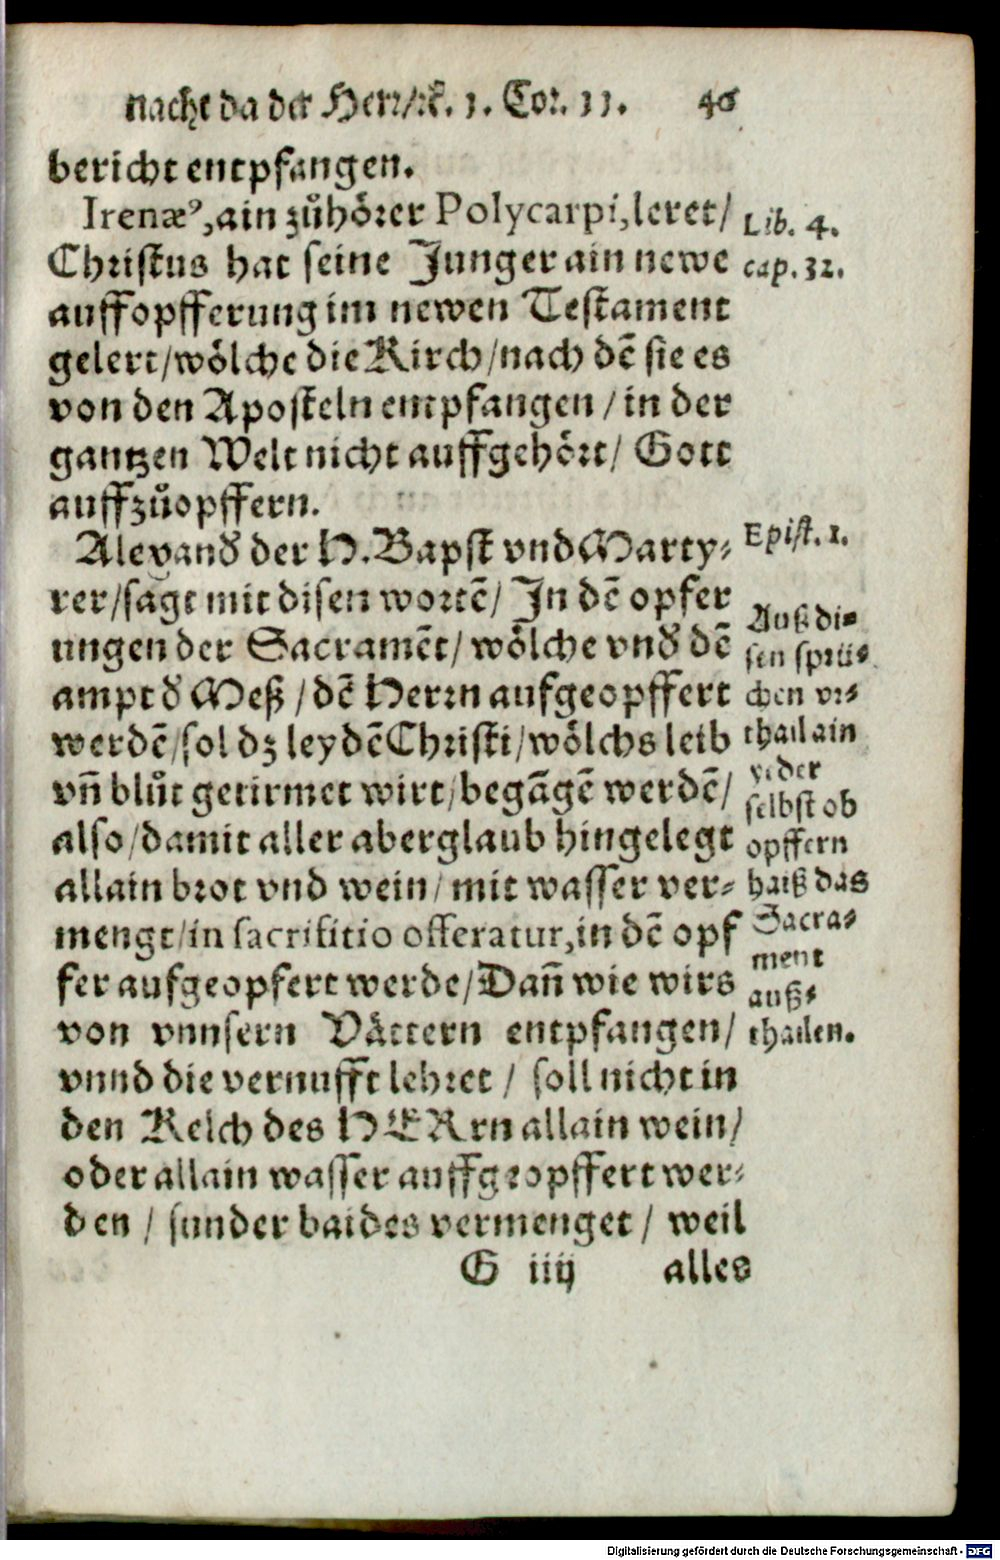 nacht da der Herr/ꝛc. 1. Cor. 11. 46
bericht entpfangen.
Irenæꝰ, ain zůhörer Polycarpi, leret/
Christus hat seine Junger ain newe
auffopfferung im newen Testament
gelert/wölche die Kirch/nach dē sie es
von den Aposteln empfangen/in der
gantzen Welt nicht auffgehört/ Gott
auffzůopffern.
Lib. 4.
cap. 32.
Alexand der H. Bapst vnd Marty⸗
rer/sagt mit disen wortē/ In dē opfer
ungen der Sacramēt/ wölche vnd dē
ampt d Meß/dē Herrn aufgeopffert
werdē/sol dz leydē Christi/wölchs leib
vñ blůt getirmet wirt/begāgē werdē/
also/damit aller aberglaub hingelegt
allain brot vnd wein/mit wasser ver⸗
mengt/in sacrifitio offeratur, in dē opf
fer aufgeopfert werde/Dañ wie wirs
von vnnsern Vättern entpfangen/
vnnd die vernufft lehret/ soll nicht in
den Kelch des HERrn allain wein/
oder allain wasser auffgeopffert wer⸗
den/ sunder baides vermenget/ weil
Epist. 1.
Auß di⸗
sen sprü⸗
chen vr⸗
thail ain
yeder
selbst ob
opffern
haiß das
Sacra⸗
ment
auß⸗
thailen.
G iiij alles
Digitalisierung gefördert durch die Deutsche Forschungsgemeinschaft - DFG